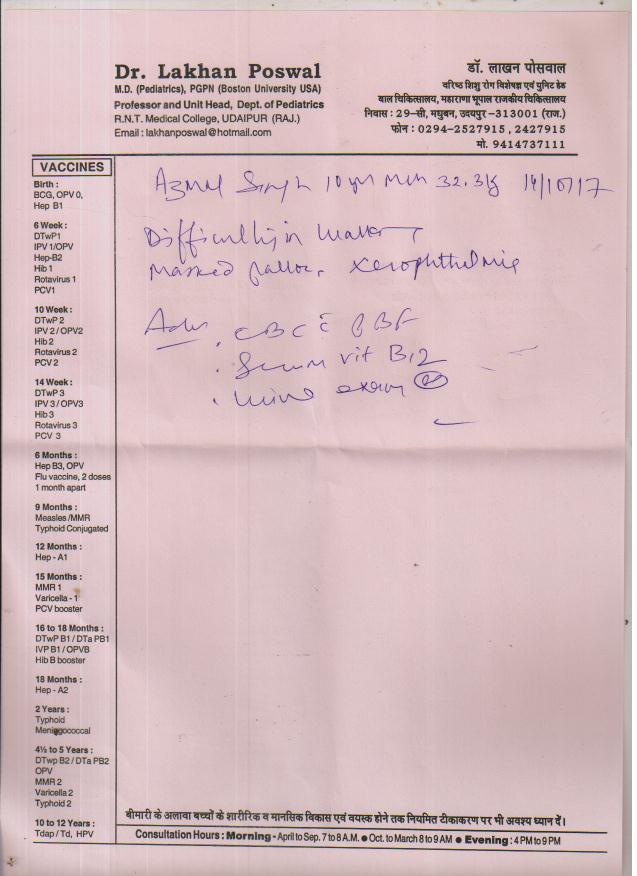 Dr. Lakhan Poswal
M.D. (Pediatrics), PGPN (Boston University USA)
Professor and Unit Head, Dept. of Pediatrics
R.N.T. Medical College, UDAIPUR (RAJ.)
Email : lakhanposwal@hotmail.com
डॉ. लाखन पोसवाल
वरिष्ठ शिशु रोग विशेषज्ञ एवं युनिट हेड
बाल चिकित्सालय, महाराणा भूपाल राजकीय चिकित्सालय
निवास : 29-सी, मधुबन, उदयपुर -313001 (राज.)
फोन : 0294-2527915, 2427915
मो. 9414737111
VACCINES
Birth :
BCG, OPV 0,
Hep B1
6 Week :
DTwP1
IPV 1/OPV
Hep-B2
Hib 1
Rotavirus 1
PCV1
10 Week :
DTwP 2
IPV 2 / OPV2
Hib 2
Rotavirus 2
PCV 2
14 Week :
DTwP 3
IPV 3 / OPV3
Hib 3
Rotavirus 3
PCV 3
6 Months :
Hep B3, OPV
Flu vaccine, 2 doses
1 month apart
9 Months :
Measles /MMR
Typhoid Conjugated
12 Months :
Hep - A1
15 Months :
MMR 1
Varicella - 1
PCV booster
16 to 18 Months :
DTwP B1 / DTa PB1
IVP B1 / OPVB
Hib B booster
18 Months :
Hep - A2
2 Years :
Typhoid
Meningococcal
4½ to 5 Years :
DTwp B2 / DTa PB2
OPV
MMR 2
Varicella 2
Typhoid 2
10 to 12 Years :
Tdap / Td, HPV
Singh 10 yr 32.3 14/10/17
Difficulty in
Marked pallor, Xerophthalmia
Adv
. CBC PBF
. Serum vit B12
. Urine exam
बीमारी के अलावा बच्चों के शारीरिक व मानसिक विकास एवं वयस्क होने तक नियमित टीकाकरण पर भी अवश्य ध्यान दें।
Consultation Hours : Morning - April to Sep. 7 to 8 A.M. ● Oct. to March 8 to 9 AM ● Evening : 4 PM to 9 PM